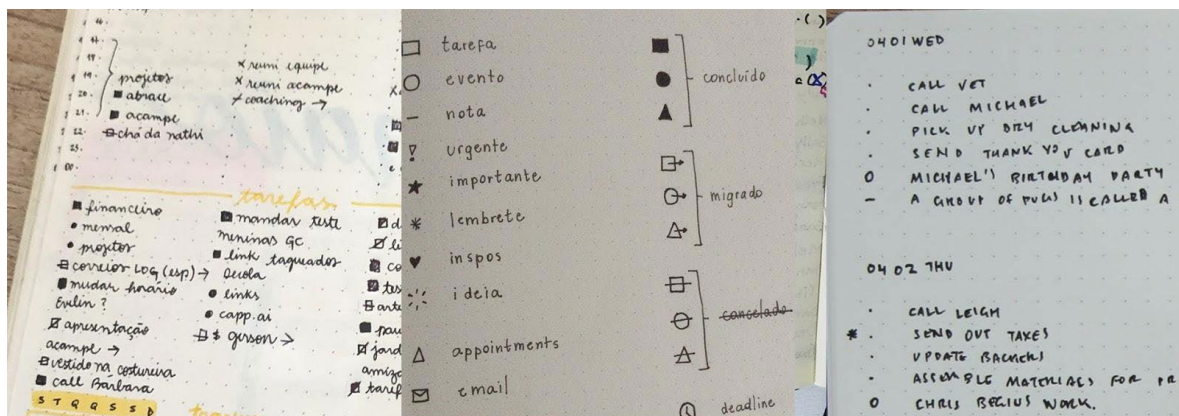 17.
18.
19.
20.
21.
22.
23.
00.
projetos
abrace
acampe
chá da nathi
x reuni equipe
x reuni acampe
coaching →
tarefas
financeiro
mensal
projetos
correios LOG (esp) →
mudar horário
Evelin ?
apresentação
acampe →
vestido na costureira
call Bárbara
S T Q Q S S D
mandar teste
meninas GC
link taqueados
links
capp.ai
$ gerson →
tarefa
evento
nota
urgente
importante
lembrete
inspos
ideia
appointments
email
concluído
migrado
cancelado
deadline
0401 WED
. CALL VET
. CALL MICHAEL
. PICK UP DRY CLEANING
. SEND THANK YOU CARD
O MICHAEL'S BIRTHDAY PARTY
– A GROUP OF PUGS IS CALLED A
0402 THU
. CALL LEIGH
* . SEND OUT TAXES
. UPDATE BACKERS
. ASSEMBLE MATERIALS FOR PR
O CHRIS BEGINS WORK.